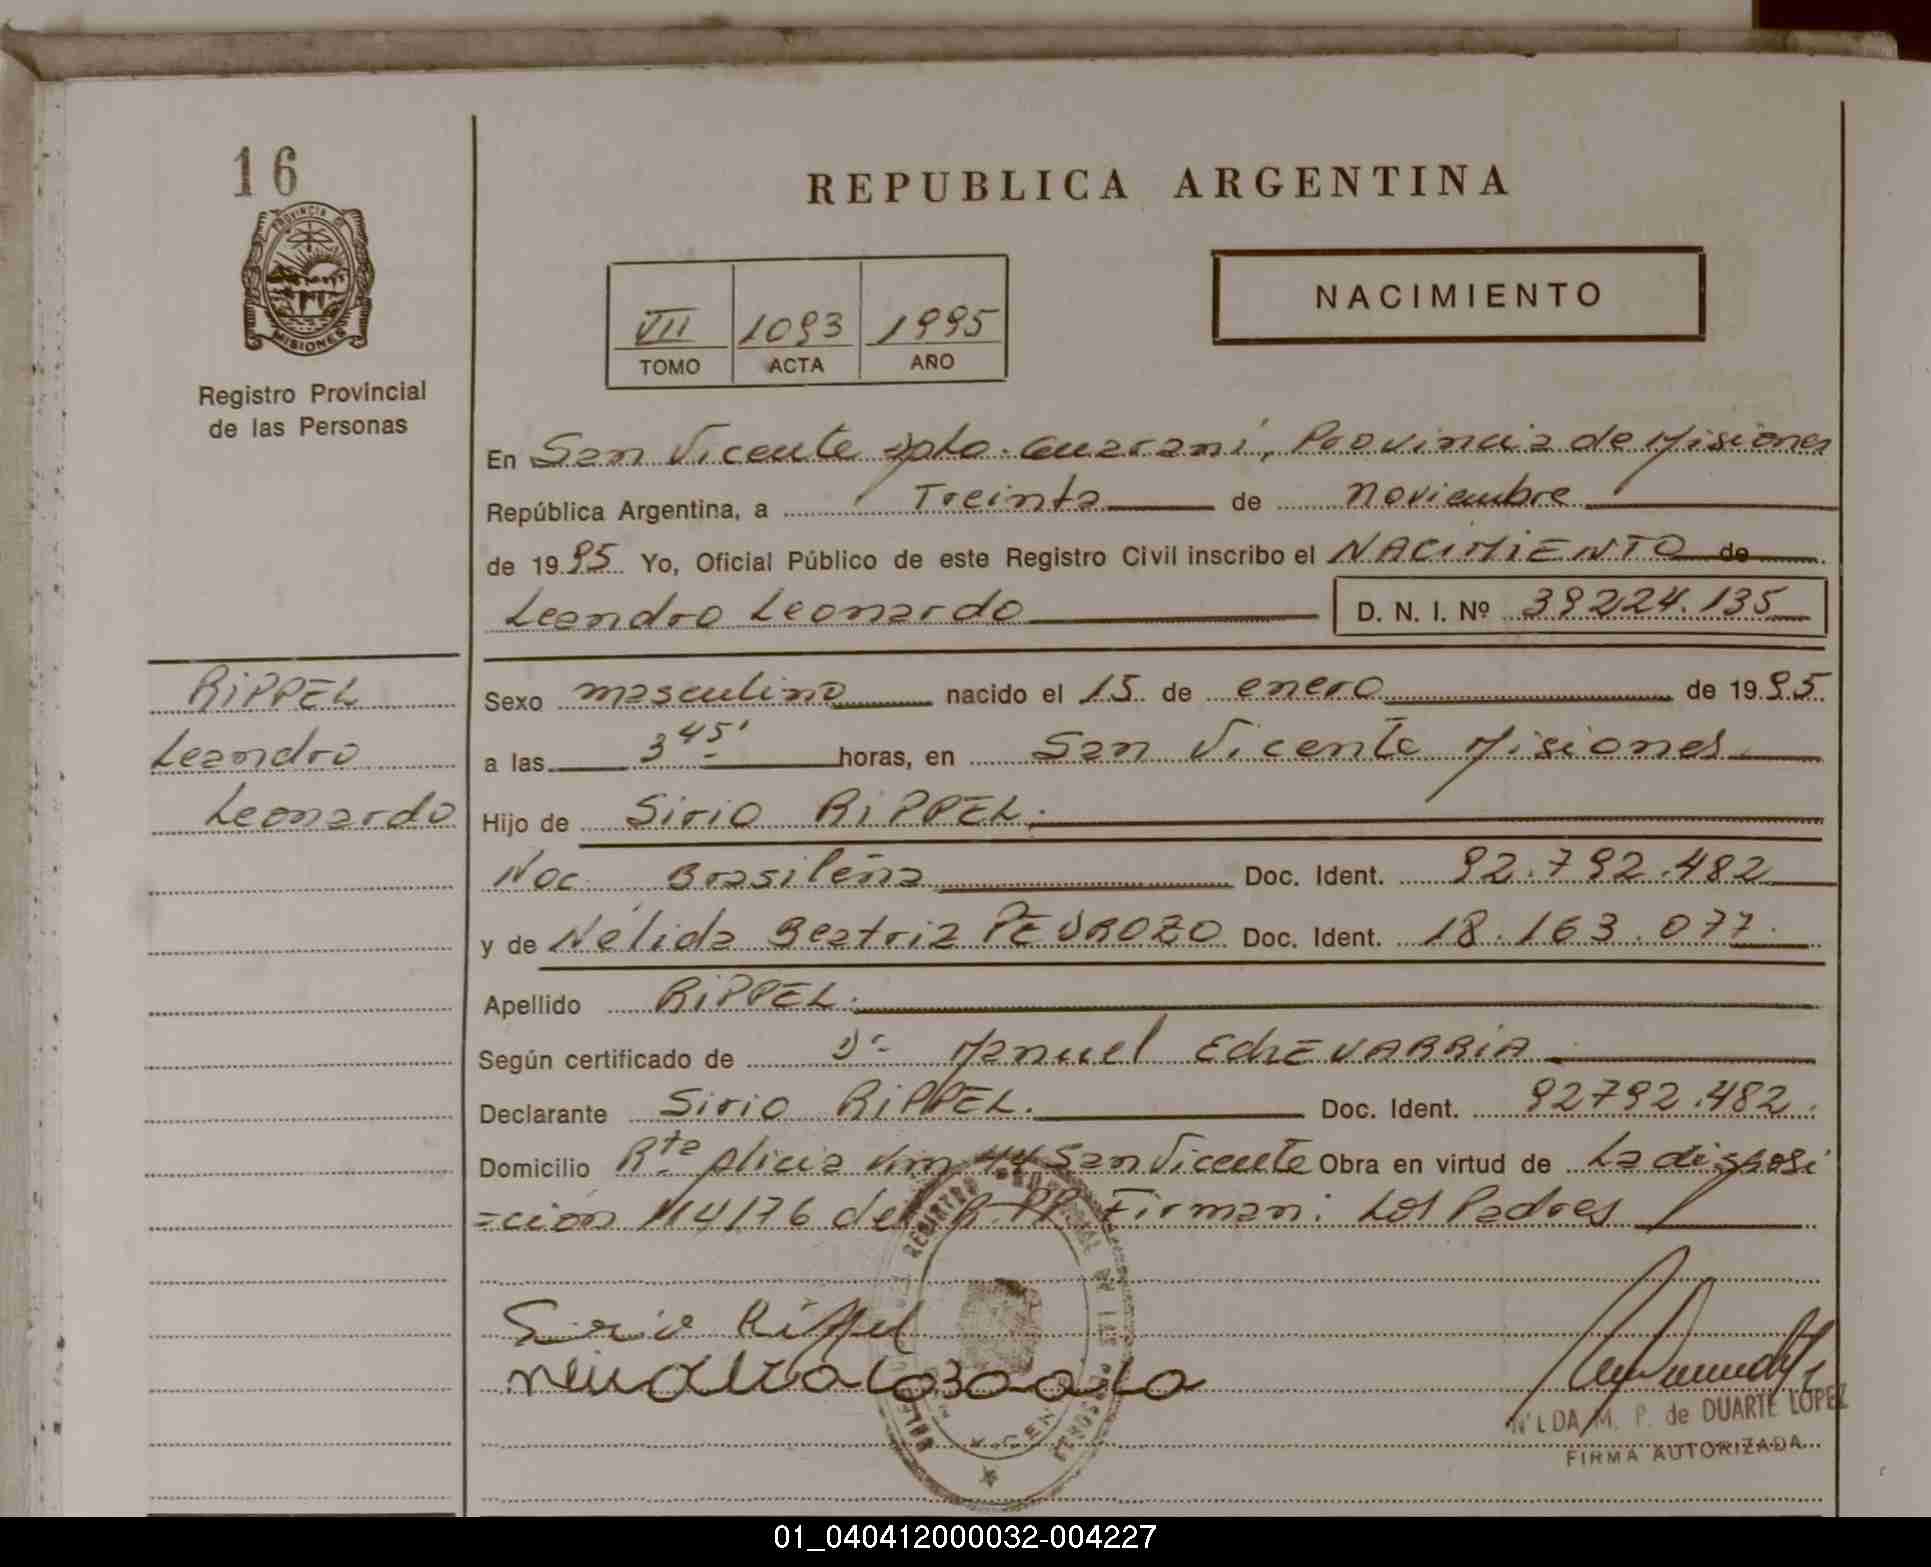 16
PROVINCIA DE
MISIONES
Registro Provincial
de las Personas
REPUBLICA ARGENTINA
VII 1093 1995
TOMO ACTA AÑO
NACIMIENTO
En San Vicente Dpto. Guaraní, Provincia de Misiones
República Argentina, a Treinta de noviembre
de 1995 Yo, Oficial Público de este Registro Civil inscribo el NACIMIENTO de
Leandro Leonardo D. N. I. Nº 39224.135
RIPPEL
Leandro
Leonardo
Sexo masculino nacido el 15 de enero de 1995
a las 3 45' horas, en San Vicente Misiones
Hijo de Sirio RIPPEL.
Nac. Brasileña Doc. Ident. 92.792.482
y de Nélida Beatriz PEDROZO Doc. Ident. 18.163.077.
Apellido RIPPEL.
Según certificado de Dr Manuel EchEVARRIA
Declarante Sirio RIPPEL. Doc. Ident. 92792.482.
Domicilio Rta Alicia Km 44 San Vicente Obra en virtud de La disposi
=ción 114/76 del R.PP. Firman: Los Padres
Sirio Rippel
REGISTRO PROVINCIAL DE LAS PERSONAS
N LDA M. P. de DUARTE LOPEZ
FIRMA AUTORIZADA
01_040412000032-004227